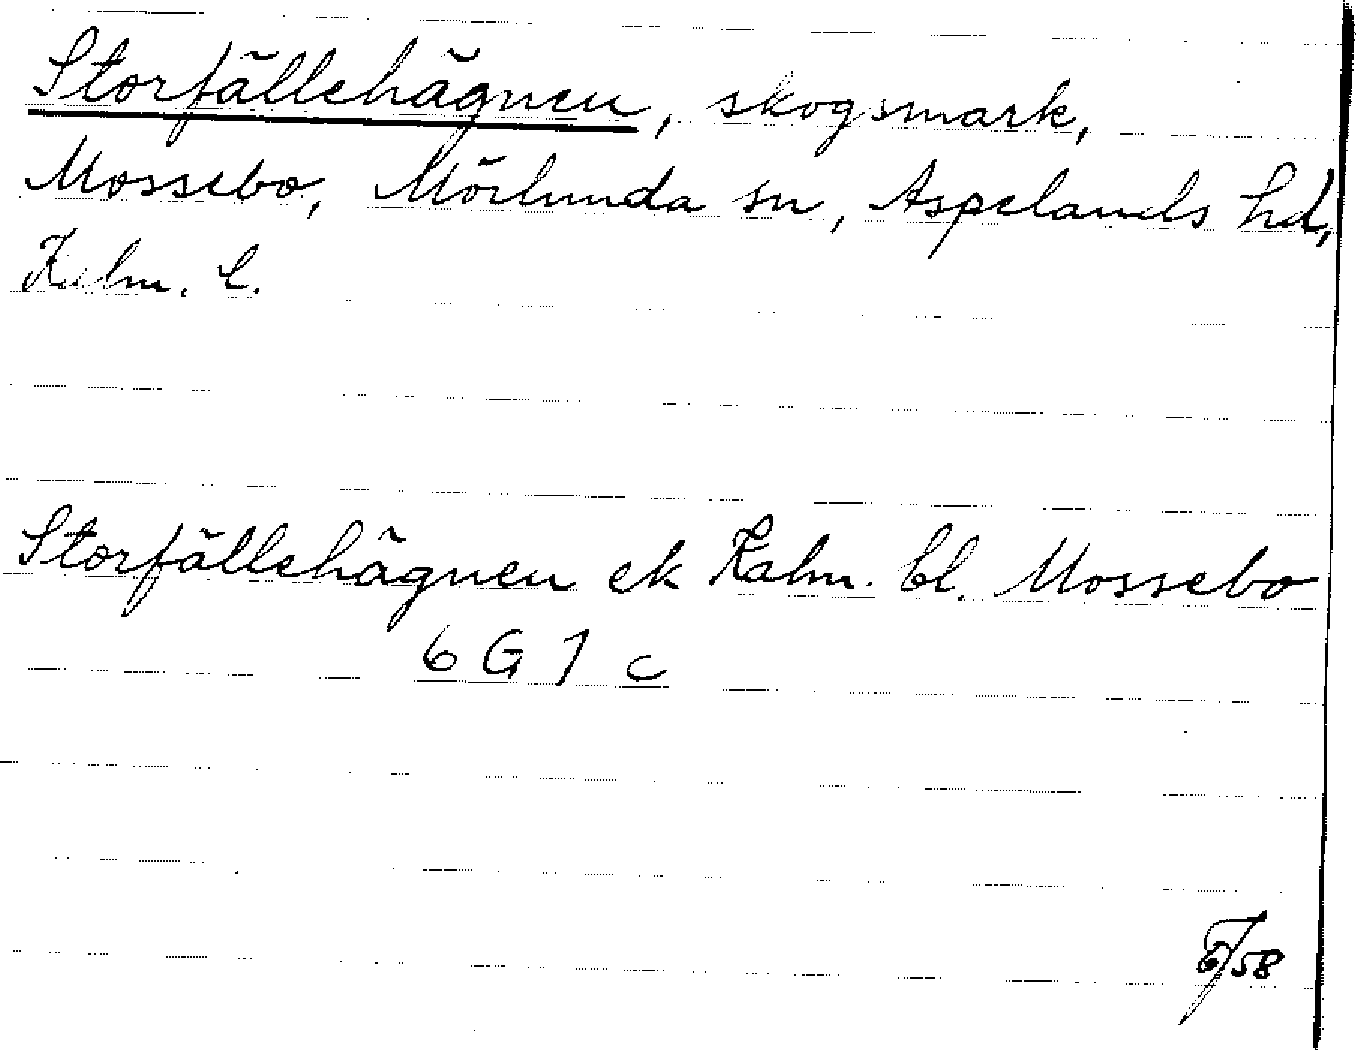 Storfällehägnen, skogsmark,
Mossebo, Mörlunda sn, Aspelands hd,
Kalm. l.
Storfällehägnen ek Kalm. bl. Mossebo
6 G 7 c
6/58